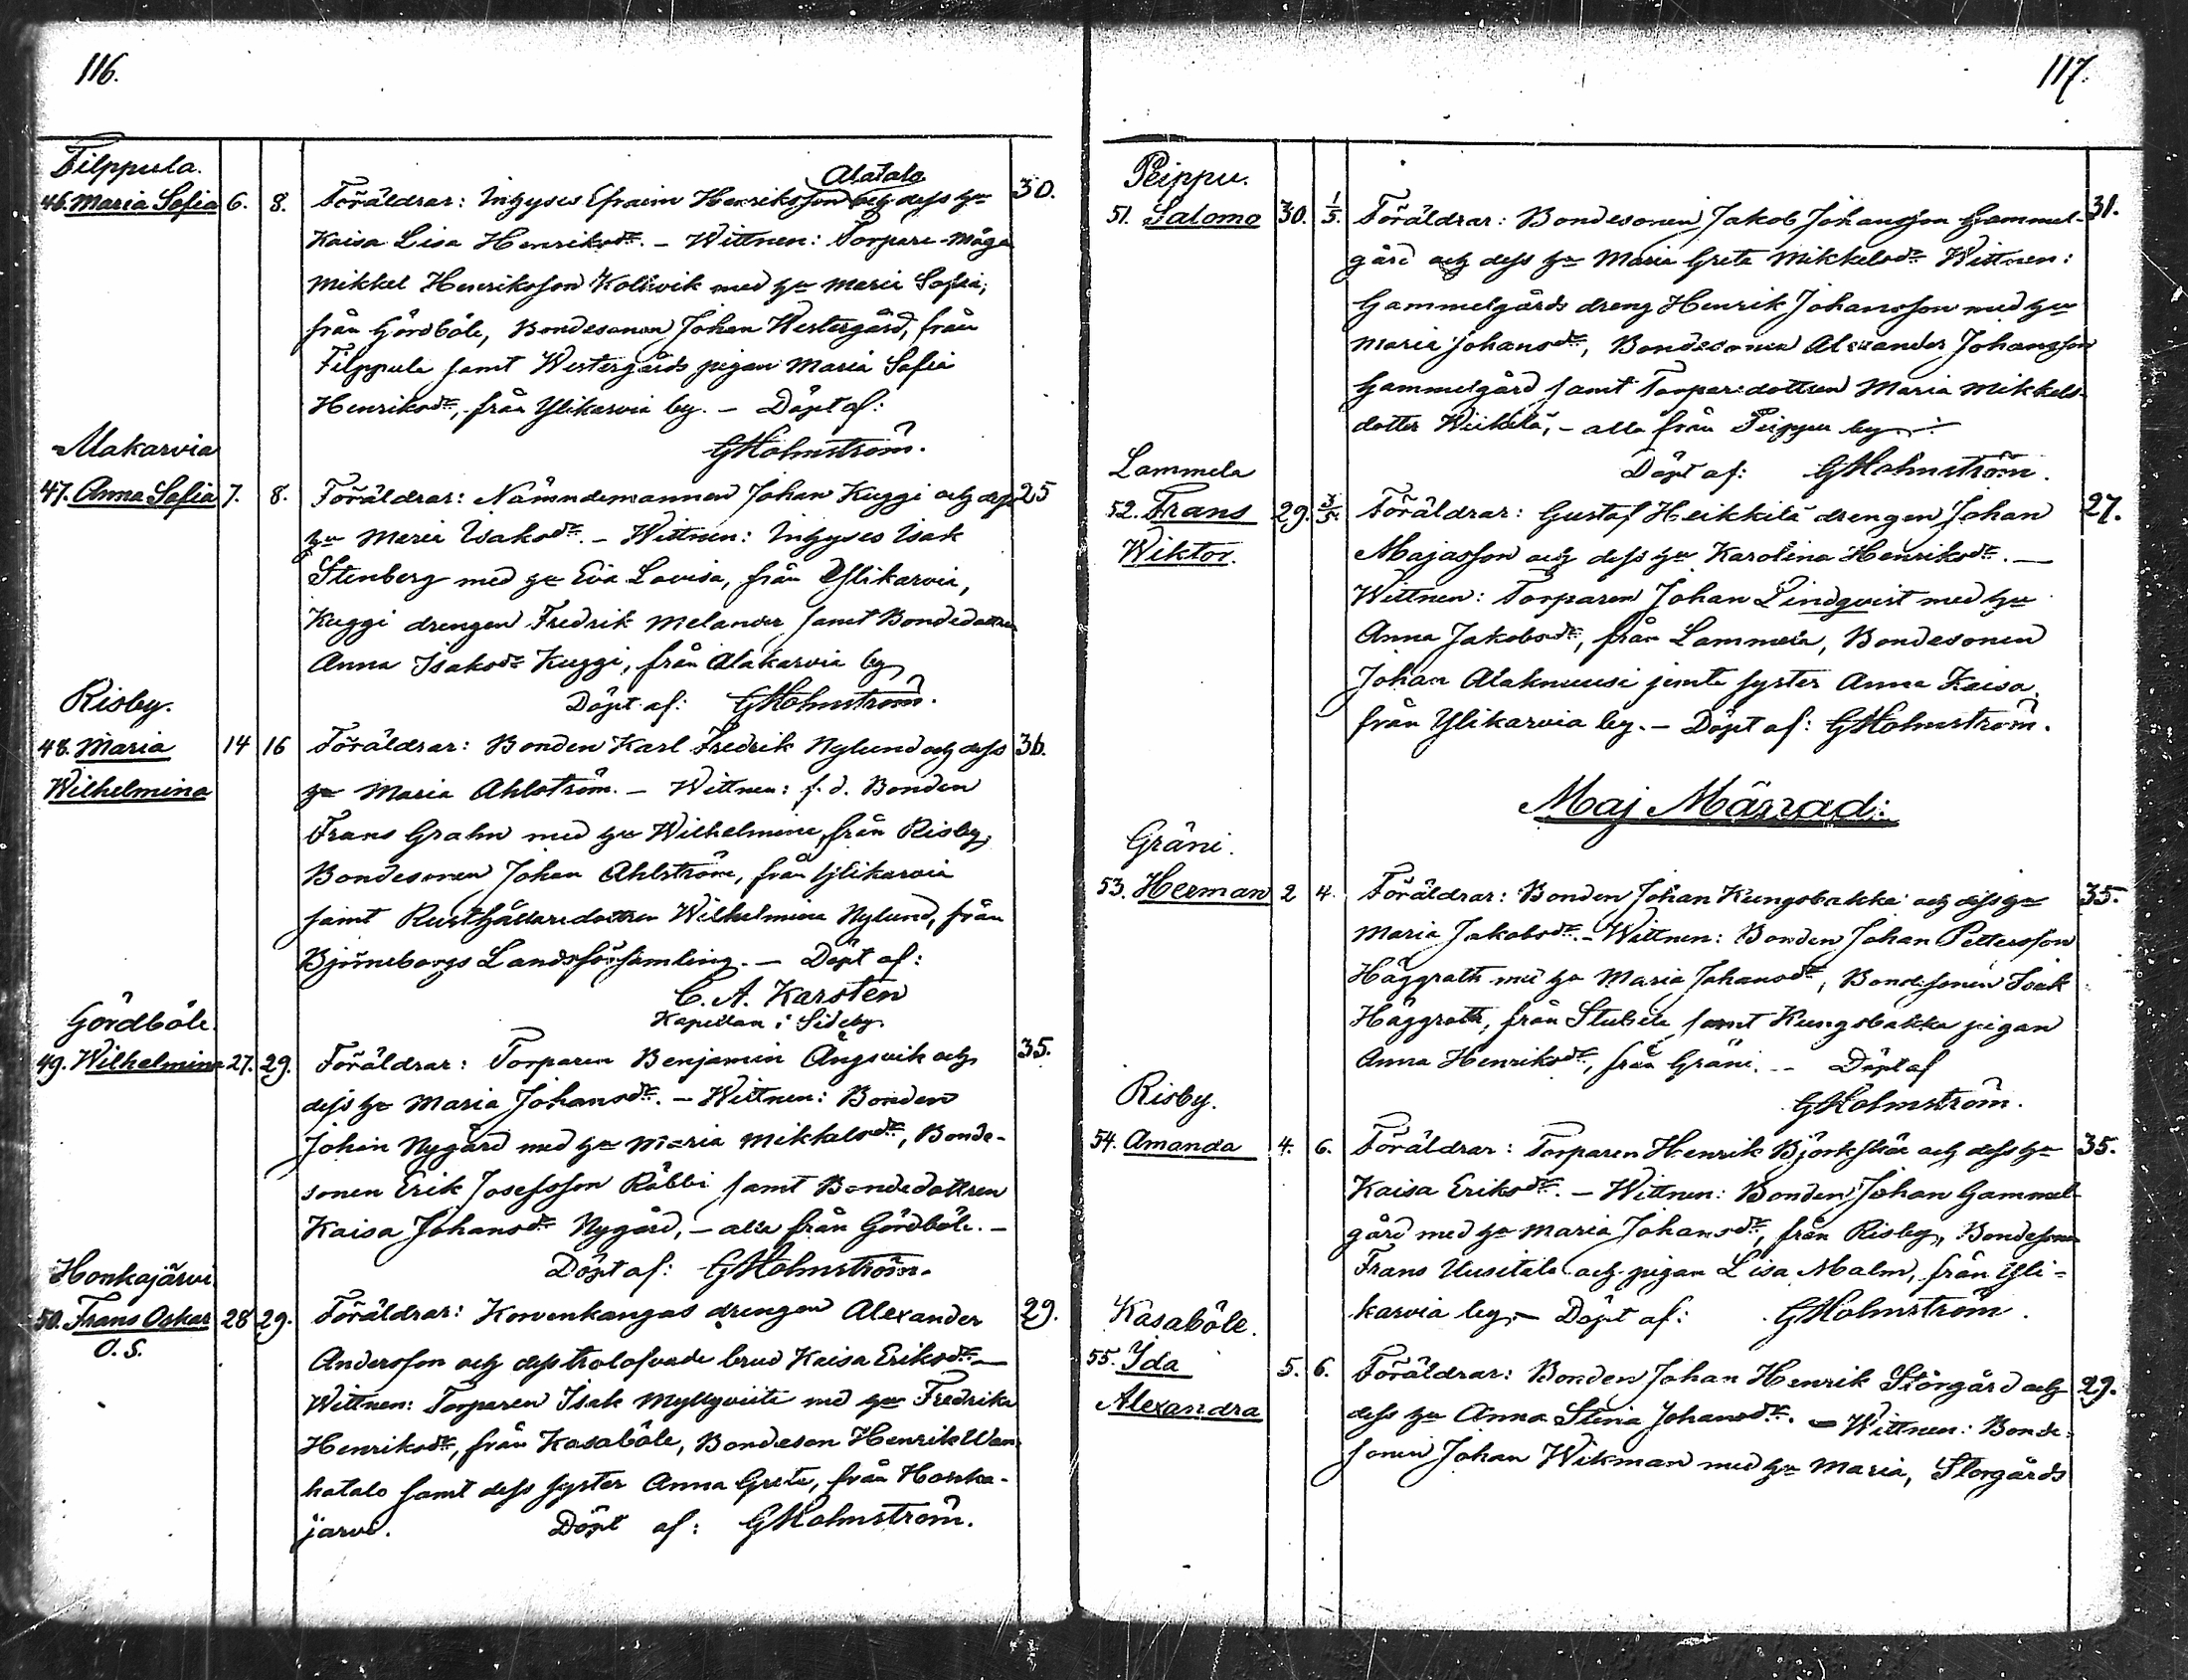 116.
Filppula.
46. Maria Sofia 6. 8. Föräldrar: Inhyses Efraim Henriksson Alatalo och dess hu 30.
Kaisa Lisa Henriksdr. – Wittnen: Torpare-mågen
Mikkel Henriksson Kolkvik med hu Maria Sofia,
från Gördböle, Bondesonen Johan Westergård, från
Filppula samt Westergårds pigan Maria Sofia
Henriksdr, från Ylikarvia by. – Döpt af:
GHolmström.
Alakarvia
47. Anna Sofia 7. 8. Föräldrar: Nämndemannen Johan Kuggi och dess 25
hu Maria Isaksdr. – Wittnen: Inhyses Isak
Stenberg med hu Eva Lovisa, från Ylikarvia,
Kuggi drengen Fredrik Melander samt Bondedottren
Anna Isaksdr Kuggi, från Alakarvia by
Döpt af: GHolmström.
Risby.
48. Maria 14 16 Föräldrar: Bonden Karl Fredrik Nylund och dess 36.
Wilhelmina hu Maria Ahlström. – Wittnen: f.d. Bonden
Frans Grahn med hu Wilhelmina, från Risby,
Bondesonen Johan Ahlström, från Ylikarvia
samt Rusthållaredottren Wilhelmina Nylund, från
Björneborgs Landsförsamling. – Döpt af:
C. A. Karsten
Kapellan i Sideby.
Gördböle.
49. Wilhelmina 27. 29. Föräldrar: Torparen Benjamin Ängsvik och 35.
dess hu Maria Johansdr. – Wittnen: Bonden
Johan Nygård med hu Maria Mikkelsdr, Bonde-
sonen Erik Josefsson Räbbi samt Bondedottren
Kaisa Johansdr Nygård, – alla från Gördböle. –
Döpt af: GHolmström.
Honkajärvi
50. Frans Oskar 28 29. Föräldrar: Kovenkangas drengen Alexander 29.
O. S. Andersson och dess trolofvade brud Kaisa Eriksdr –
Wittnen: Torparen Isak Myllyviita med hu Fredrika
Henriksdr, från Kasaböle, Bondeson Henrik Wan-
hatalo samt dess syster Anna Greta, från Honka-
järvi. Döpt af: GHolmström.
117.
Peippu.
51. Salomo 30. 1/5. Föräldrar: Bondesonen Jakob Johansson Gammel- 31.
gård och dess hu Maria Greta Mikkelsdr Wittnen:
Gammelgårds dreng Henrik Johansson med hu
Maria Johansdr, Bondesonen Alexander Johansson
Gammelgård samt Torparedottren Maria Mikkels-
dotter Wiikilä, – alla från Peippu by. –
Döpt af: GHolmström.
Lammela
52. Frans 29. 3/5. Föräldrar: Gustaf Heikkilä drengen Johan 27.
Wiktor. Majasson och dess hu Karolina Henriksdr. –
Wittnen: Torparen Johan Lindqvist med hu
Anna Jakobsdr, från Lammela, Bondesonen
Johan Alaknuusi jemte syster Anna Kaisa,
från Ylikarvia by. – Döpt af: GHolmström.
Maj Månad:
Gräni.
53. Herman 2 4. Föräldrar: Bonden Johan Kungsbakka och dess hu 35.
Maria Jakobsdr. – Wittnen: Bonden Johan Pettersson
Häggroth med hu Maria Johansdr, Bondesonen Isak
Häggroth, från Stubela samt Kungsbakka pigan
Anna Henriksdr, från Gräni. – Döpt af
GHolmström.
Risby.
54. Amanda 4. 6. Föräldrar: Torparen Henrik Björkskär och dess hu 35.
Kaisa Eriksdr. – Wittnen: Bonden Johan Gammel-
gård med hu Maria Johansdr, från Risby, Bondesonen
Frans Uusitalo och pigan Lisa Malm, från Yli-
karvia by, – Döpt af: GHolmström.
Kasaböle.
55. Ida 5. 6. Föräldrar: Bonden Johan Henrik Storgård och 29.
Alexandra dess hu Anna Stina Johansdr. – Wittnen: Bonde-
sonen Johan Wikman med hu Maria, Storgårds